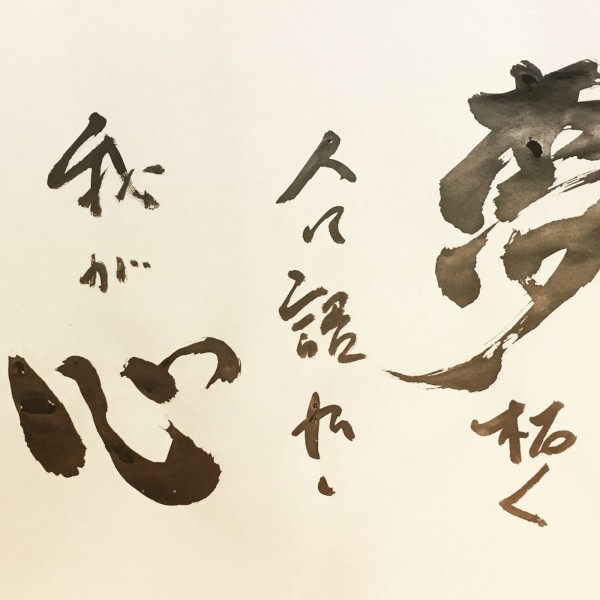 夢拓く
人に語
我が心